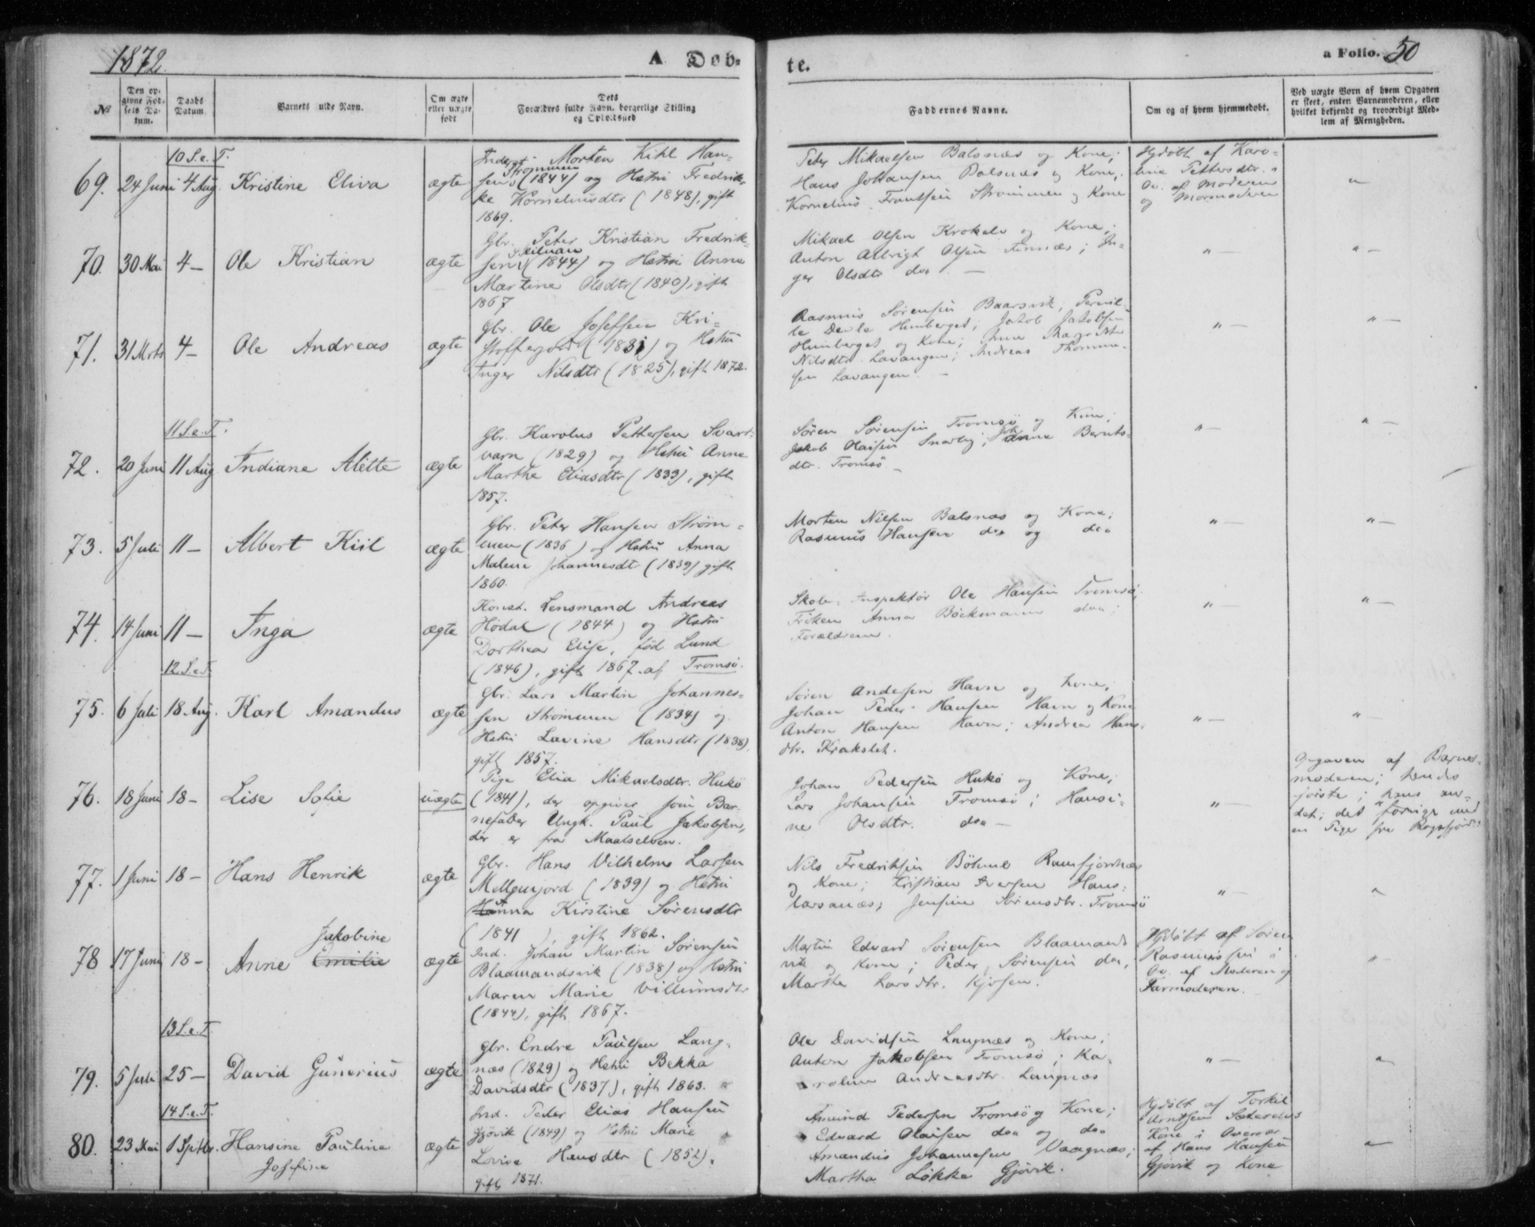 1872.
A Døb-
te.
a Folio. 50
No
Den op-
givne Fød-
sels Da-
tum.
Daabs
Datum.
Barnets fulde Navn.
Om ægte
eller uægte
født
Dets
Forældres fulde Navn, borgerlige Stilling
og Opholdssted
Faddernes Navne.
Om og af hvem hjemmedøbt.
Ved uægte Børn af hvem Opgaven
er skeet, enten Barnemoderen, eller
hvilket bekjendt og troværdigt Med-
lem af Menigheden.
10 S. e. T.
69. 24 Juni 4 Aug. Kristine Eliva ægte
Inderst Morten Kihl Han-
sen Strømmen (1844) og Hstru Fredrik-
ke Kornelusdtr (1848), gift
1869.
Peter Mikaelsen Balsnæs og Kone;
Hans Johansen Balsnæs og Kone;
Kornelius Frantsen Strømmen og Kone
Hjdøbt af Karo-
line Pettersdtr. i
Ov. af Moderen
og Mormoderen
"
70. 30 Mai 4 — Ole Kristian ægte
Gbr. Peter Kristian Fredrik-
sen (1844) og Hstru Anne
Martine Olsdtr (1840), gift
1867
Mikael Olsen Krokelv og Kone;
Anton Albrigt Olsen Finnæs; In-
ger Olsdtr do —
" —
" —
71. 31 Mrts 4 — Ole Andreas ægte
Gbr. Ole Josefsen Kri-
stoffejord (1831) og Hstru
Inger Nilsdtr (1825), gift 1872.
Rasmus Sørensen Baarsvik; Pernil-
le do Himberget; Jakob Jakobsen
Himberget og Kone;
Nilsdtr. Lavangen; Andreas Thomme-
sen Lavangen. —
" —
" —
11 S. e. T.
72. 20 Juni 11 Aug Indiane Alette ægte
Gbr. Karolus Pettersen Svart-
varn (1829) og Hstru Anne
Marthe Eliasdtr (1833), gift
1857.
Søren Sørensen Tromsø og Kone;
Jakob Olaisen Snarby; Johanna Bernts-
dtr. Tromsø —
" —
" —
73. 5 Juli 11 — Albert Kiil ægte
Gbr. Peter Hansen Strøm-
men (1836) og Hstru Anna
Malene Johannesdtr (1839) gift
1860.
Morten Nilsen Balsnæs og Kone;
Rasmus Hansen do og do
" —
" —
74. 14 Juni 11 — Inga ægte
Konst. Lensmand Andreas
Hodal (1844) og Hstru
Dorthea Elise, fød Lund
(1846), gift 1867. af Tromsø.
Skole-Inspektør Ole Hansen Tromsø.
Frøken Anna Bøckmann do;
Forældrene.
" —
" —
12. S. e. T.
75. 6 Juli 18 Aug. Karl Amandus ægte
Gbr. Lars Martin Johannes-
sen Strømmen (1834) og
Hstru Lavine Hansdtr (1838),
gift 1857.
Søren Andersen Havn og Kone;
Johan Peder Hansen Havn og Kone
Anton Hansen Havn; Andrea Hans-
dtr. Krakslet.
" —
" —
76. 18 Juni 18 — Lise Sofie uægte
Pige Elia Mikaelsdtr. Hukø
(1841), der opgiver som Bar-
nefader Ungk. Paul Jakobsen,
der er fra Maalselven.
Johan Pedersen Hukø og Kone;
Lars Johansen Tromsø; Hansi-
ne Olsdtr. do —
" —
Opgaven af Barnes-
moderen; hendes
første; hans an-
det; det forrige med
en Pige fra
77. 1 Juni 18 — Hans Henrik ægte
Gbr. Hans Vilhelm Larsen
Mellemjord (1839) og Hstru
Hanna Kirstine Sørensdtr
(1841), gift 1862.
Nils Fredriksen Böhme Ramfjordnæs
og Kone; Kristian Iversen Hans-
larsanæs; Jensine Sørensdtr. Tromsø
" —
"
78 17 Juni 18 — Anne Jakobine Emilie ægte
Ind. Johan Martin Sørensen
Blaamandsvik (1838) og Hstru
Maren Marie Villumsdtr
(1844), gift 1867.
Martin Edvard Sørensen Blaamands
vik og Kone; Peder Sørensen do,
Marthe Larsdtr. Kjosen.
Hjdøbt af Søren
Rasmussen i
Ov. af Moderen og
Farmoderen.
"
13 S. e. T.
79. 5 Juli 25 — David Gunerius ægte
Gbr. Endre Paulsen Lang-
næs (1829) og Hstru Bekka
Davidsdtr (1837), gift 1863.
Ole Davidsen Langnæs og Kone;
Anton Jakobsen Tromsø; Ka-
roline Andreasdtr. Langnæs
" —
"
14 S. e. T.
80. 23 Mai 1 Septbr. Hansine Pauline
Josefine ægte
Ind. Peder Elias Hansen
Gjøvik (1849) og Hstru Marie
Lovise Hansdtr (1852),
gift 1871.
Amund Pedersen Tromsø og Kone;
Edvard Olaisen do og do
Amandus Johannesen Vaagnæs;
Martha Løkke Gjøvik.
Hjdøbt af Torkil
Arntsen
Kone i Overvær
af Hans Hansen
Gjøvik og Kone
"